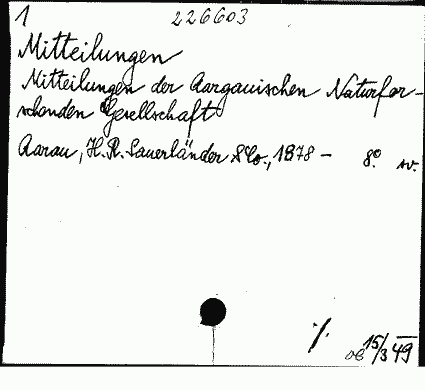 1 226603
Mitteilungen
Mitteilungen der Aargauischen Naturfor-
schenden Gesellschaft
Aarau, H. R. Sauerländer &Co., 1878 – 8° sv.
%
15/3 49